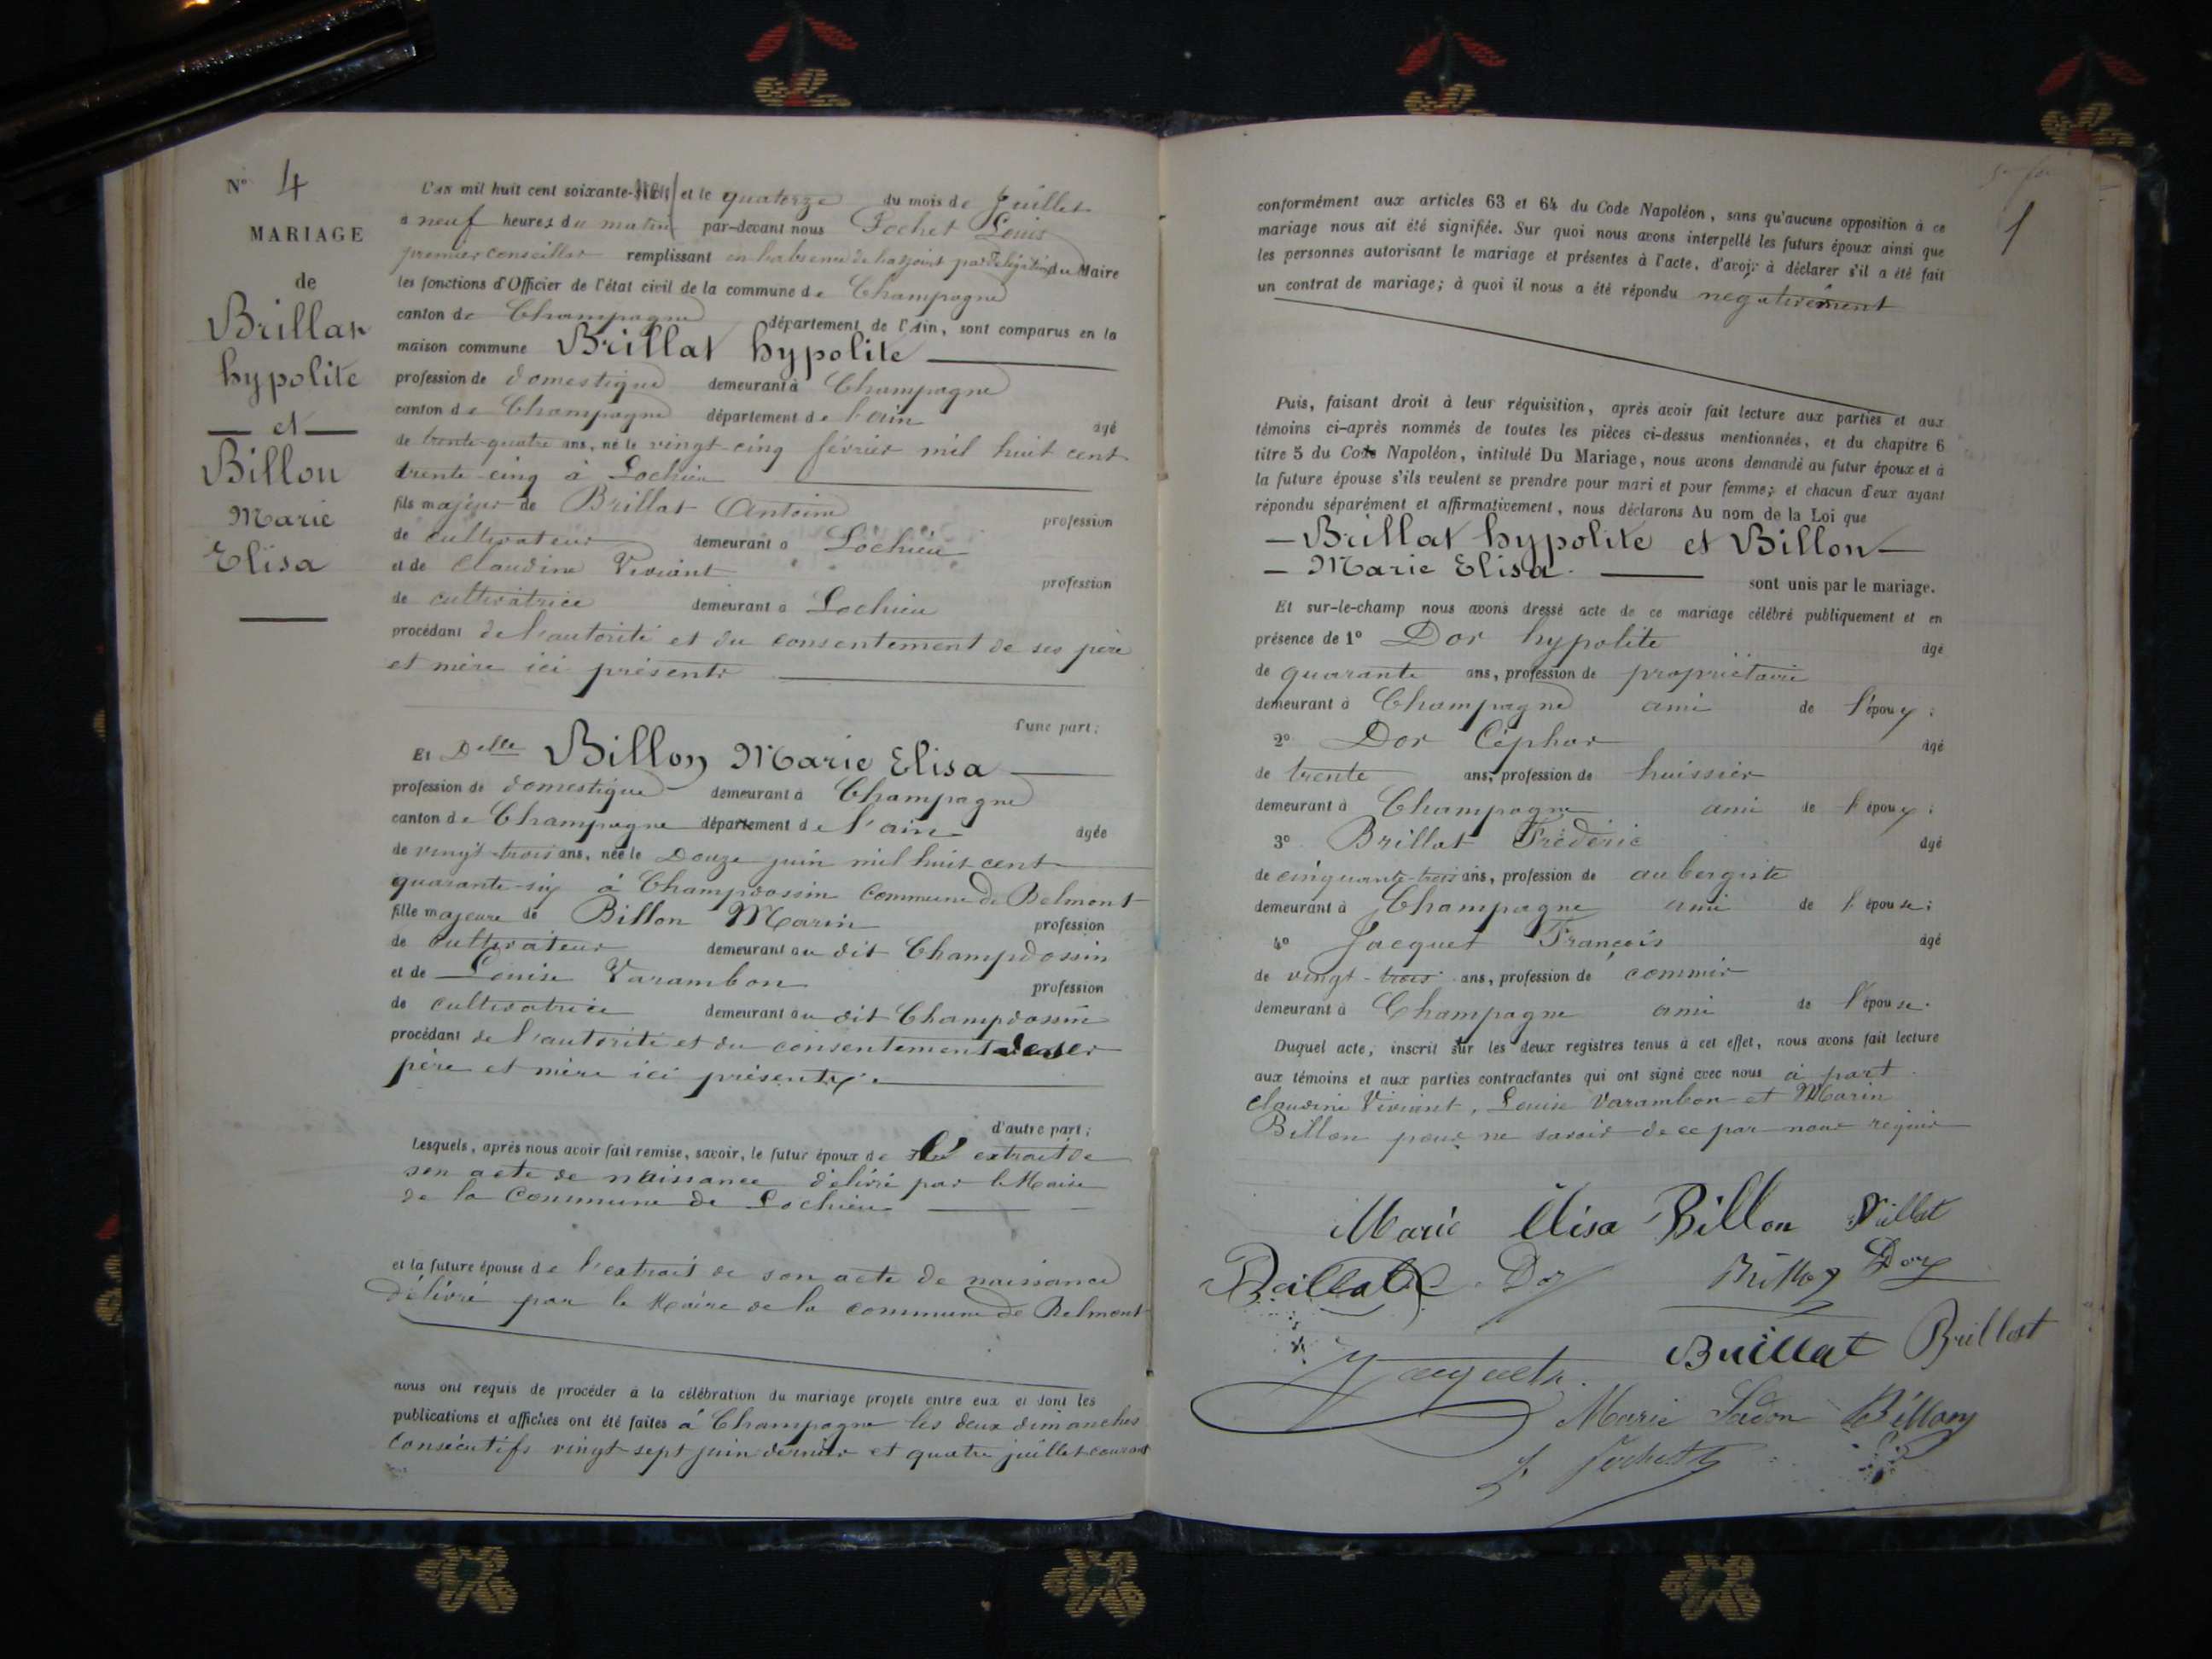 N° 4
MARIAGE
de
Brillat
hypolite
et
Billon
Marie
Elisa
L'an mil huit cent soixante- et le quatorze du mois de Juillet
à neuf heures du matin par-devant nous Pochet Louis
premier conseiller remplissant en l'absence de l'adjoint par délégation du Maire
les fonctions d'Officier de l'état civil de la commune de Champagne
canton de Champagne département de l'Ain, sont comparus en la
maison commune Brillat hypolite
profession de domestique demeurant à Champagne
canton de Champagne département de l'ain âgé
de trente-quatre ans, né le vingt-cinq février mil huit cent
trente-cinq à Lochieu
fils majeur de Brillat Antoine profession
de cultivateur demeurant à Lochieu
et de Claudine Viviant profession
de cultivatrice demeurant à Lochieu
procédant de l'autorité et du consentement de ses père
et mère ici présents
d'une part;
Et Delle Billon Marie Elisa
profession de domestique demeurant à Champagne
canton de Champagne département de l'ain âgée
de vingt-trois ans, née le Douze juin mil huit cent
quarante-six à Champdossin Commune de Belmont
fille majeure de Billon Marin profession
de cultivateur demeurant au dit Champdossin
et de Louise Varambon profession
de cultivatrice demeurant au dit Champdossin
procédant de l'autorité et du consentement de ses
père et mère ici présents
d'autre part;
Lesquels, après nous avoir fait remise, savoir, le futur époux de l' extrait de
son acte de naissance délivré par le Maire
de la Commune de Lochieu
et la future épouse de l'extrait de son acte de naissance
délivré par le Maire de la commune de Belmont
nous ont requis de procéder à la célébration du mariage projeté entre eux et dont les
publications et affiches ont été faites à Champagne les deux dimanches
consécutifs vingt-sept juin dernier et quatre juillet courant
1
conformément aux articles 63 et 64 du Code Napoléon, sans qu'aucune opposition à ce
mariage nous ait été signifiée. Sur quoi nous avons interpellé les futurs époux ainsi que
les personnes autorisant le mariage et présentes à l'acte, d'avoir à déclarer s'il a été fait
un contrat de mariage; à quoi il nous a été répondu negativement
Puis, faisant droit à leur réquisition, après avoir fait lecture aux parties et aux
témoins ci-après nommés de toutes les pièces ci-dessus mentionnées, et du chapitre 6
titre 5 du Code Napoléon, intitulé Du Mariage, nous avons demandé au futur époux et à
la future épouse s'ils veulent se prendre pour mari et pour femme; et chacun d'eux ayant
répondu séparément et affirmativement, nous déclarons Au nom de la Loi que
— Brillat hypolite et Billon —
— Marie Elisa — sont unis par le mariage.
Et sur-le-champ nous avons dressé acte de ce mariage célébré publiquement et en
présence de 1° Dor hypolite âgé
de quarante ans, profession de propriétaire
demeurant à Champagne ami de l'époux;
2° Dor Céphas âgé
de trente ans, profession de huissier
demeurant à Champagne ami de l'époux;
3° Brillat Frédéric âgé
de cinquante-trois ans, profession de aubergiste
demeurant à Champagne ami de l'épouse;
4° Jacquet François âgé
de vingt-trois ans, profession de commis
demeurant à Champagne ami de l'épouse.
Duquel acte, inscrit sur les deux registres tenus à cet effet, nous avons fait lecture
aux témoins et aux parties contractantes qui ont signé avec nous à part
Claudine Viviant, Louise Varambon et Marin
Billon pour ne savoir de ce par nous requis
Marie Elisa Billon
Brillat Dor Dor
Brillat Brillat
Jacquet
Marie Billon
Pochet